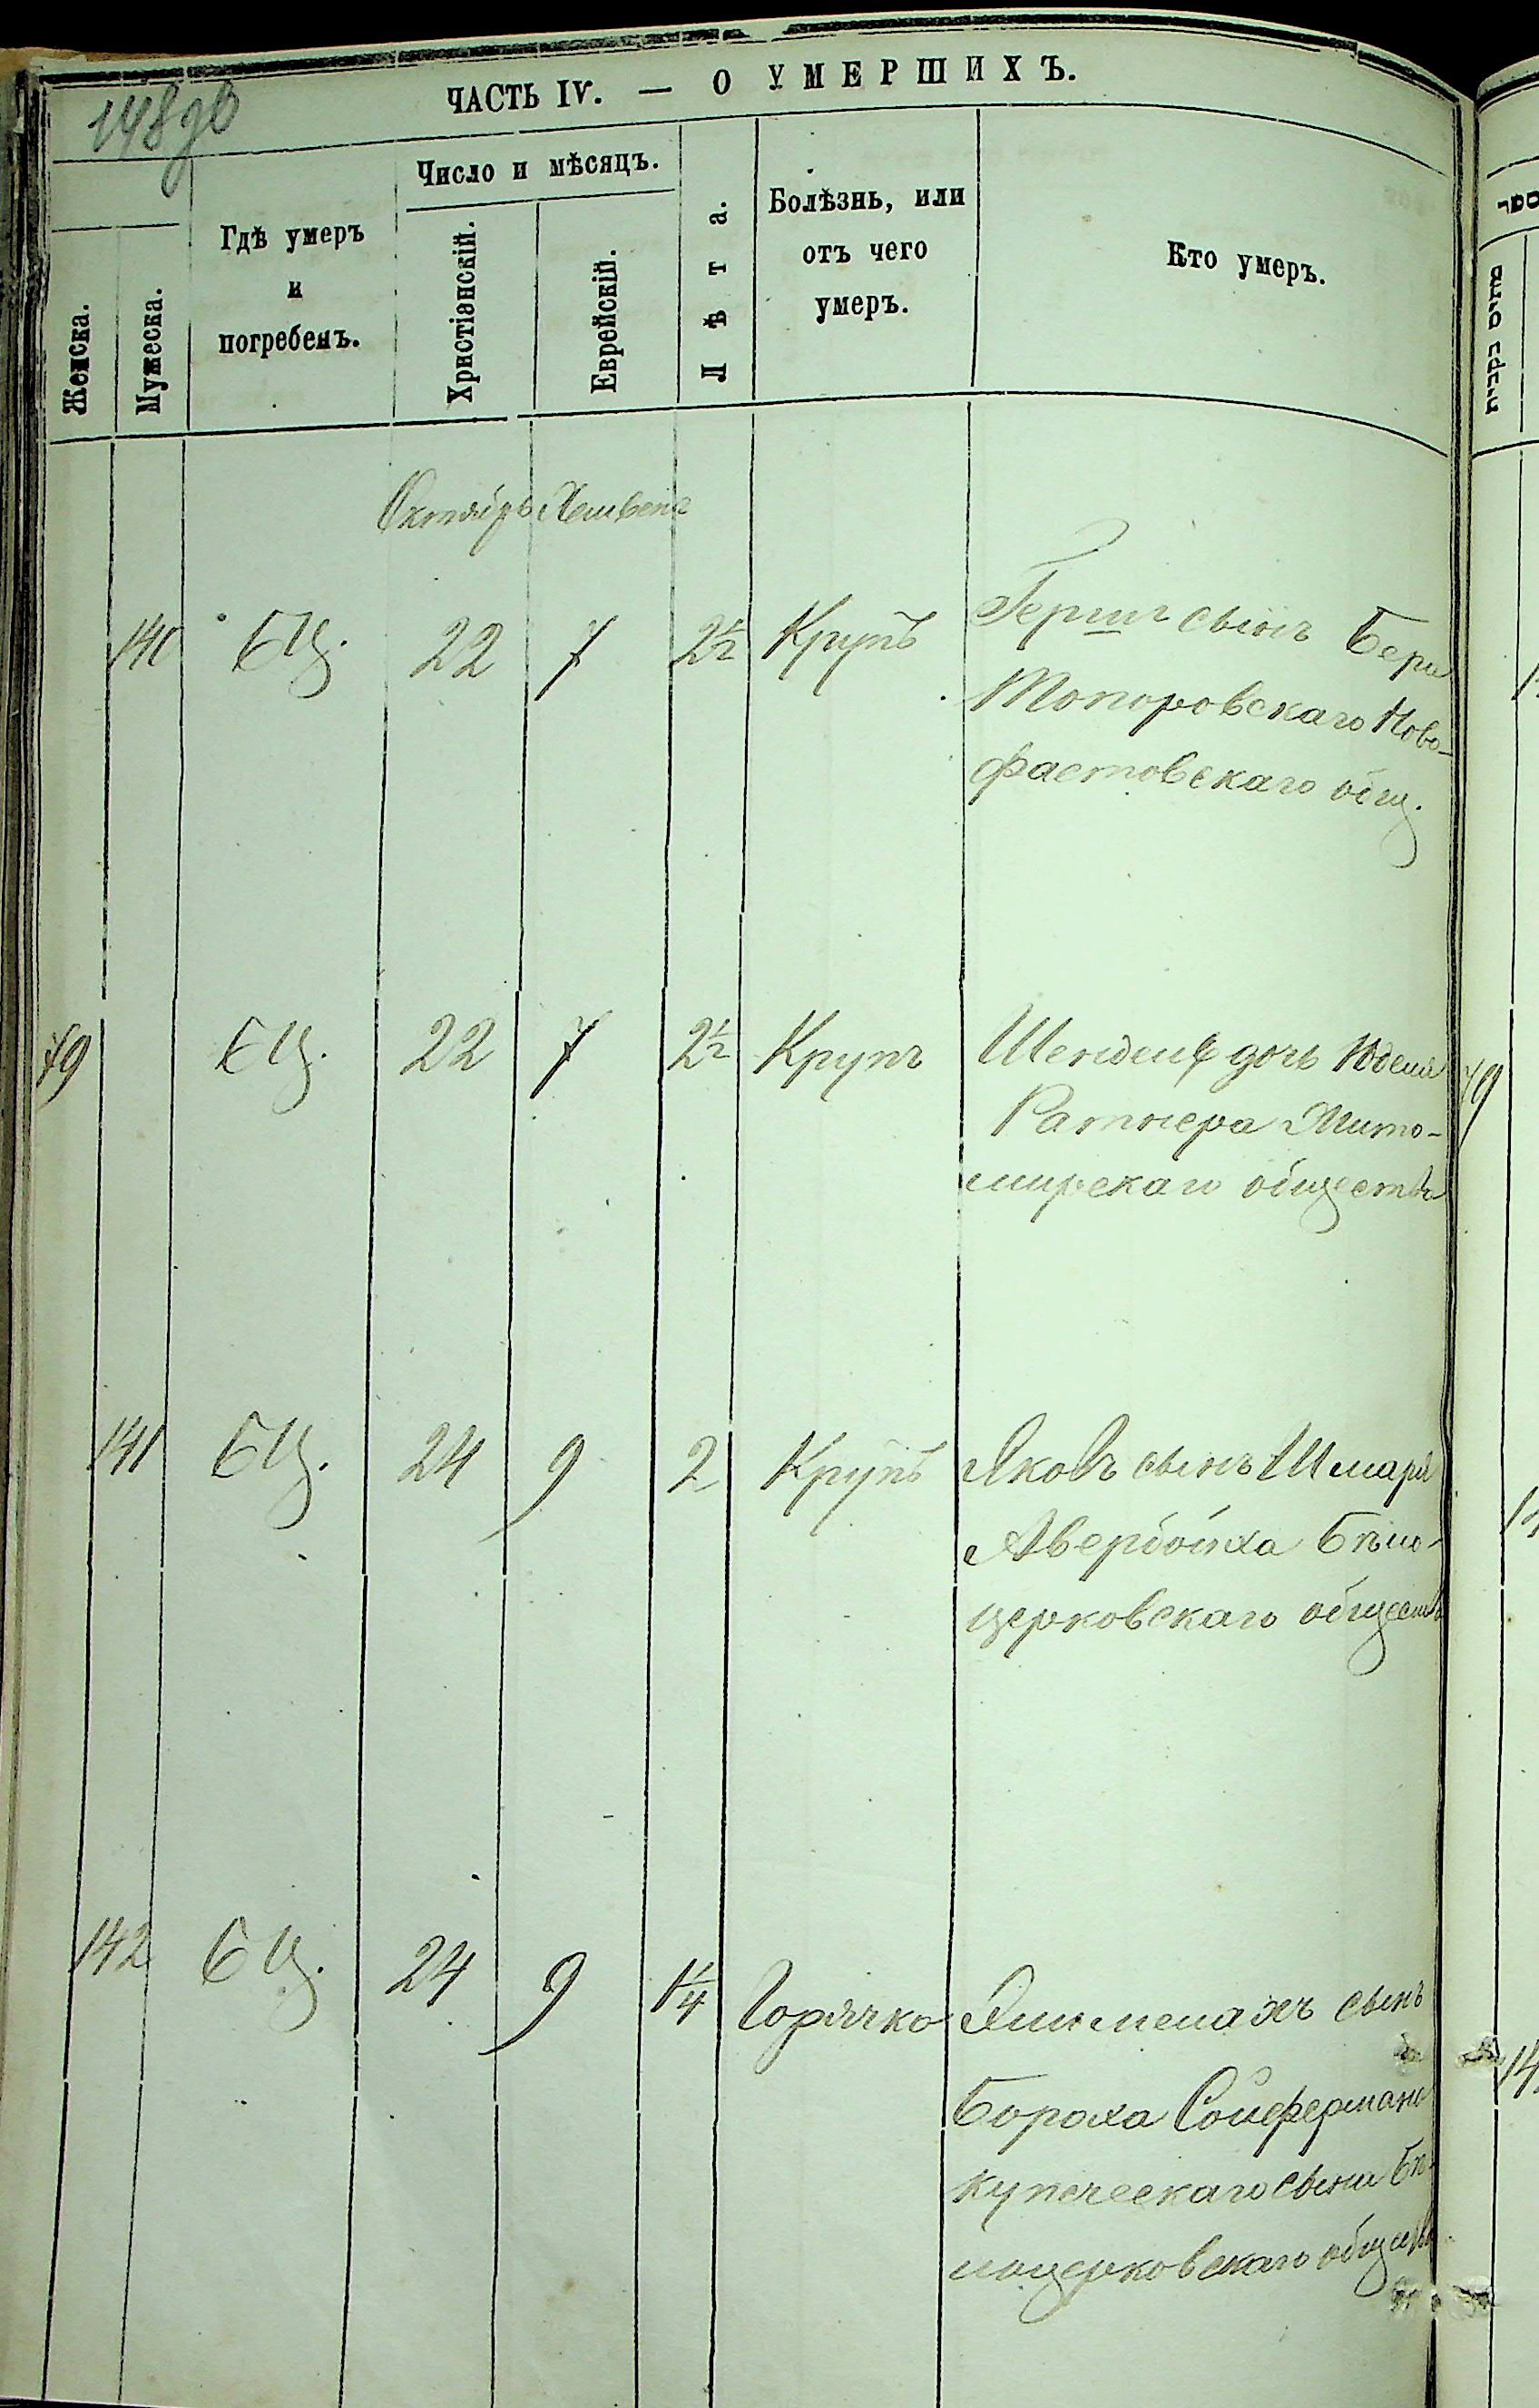 148 об
ЧАСТЬ IV. — О УМЕРШИХЪ.
Женска.
Мужеска.
Гдѣ умеръ
и
погребенъ.
Число и мѣсяцъ.
Христіанскій.
Еврейскій.
Лѣта.
Болѣзнь, или
отъ чего
умеръ.
Кто умеръ.
Октябрь Хешвенъ
140 БЦ. 22 7 2½ Крупъ Гершъ сынъ Бери
Топоровскаго Ново-
фастовскаго общ.
79 БЦ. 22 7 2½ Крупъ Шендля дочь Юделя
Ратнера Жито-
мирскаго общества
141 БЦ. 24 9 2 Крупъ Яковъ сынъ Шмаря
Авербойха Бѣло-
церковскаго общества
142 БЦ. 24 9 1¼ Горячка сынъ
Бороха Сойфермана
купеческаго сына Бѣ-
лоцерковскаго общества